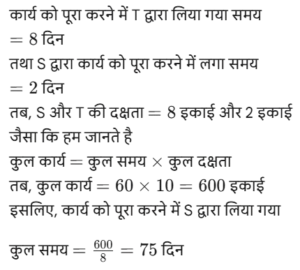 कार्य को पूरा करने में T द्वारा लिया गया समय
= 8 दिन
तथा S द्वारा कार्य को पूरा करने में लगा समय
= 2 दिन
तब, S और T की दक्षता = 8 इकाई और 2 इकाई
जैसा कि हम जानते है
कुल कार्य = कुल समय × कुल दक्षता
तब, कुल कार्य = 60 × 10 = 600 इकाई
इसलिए, कार्य को पूरा करने में S द्वारा लिया गया
कुल समय = 600/8 = 75 दिन